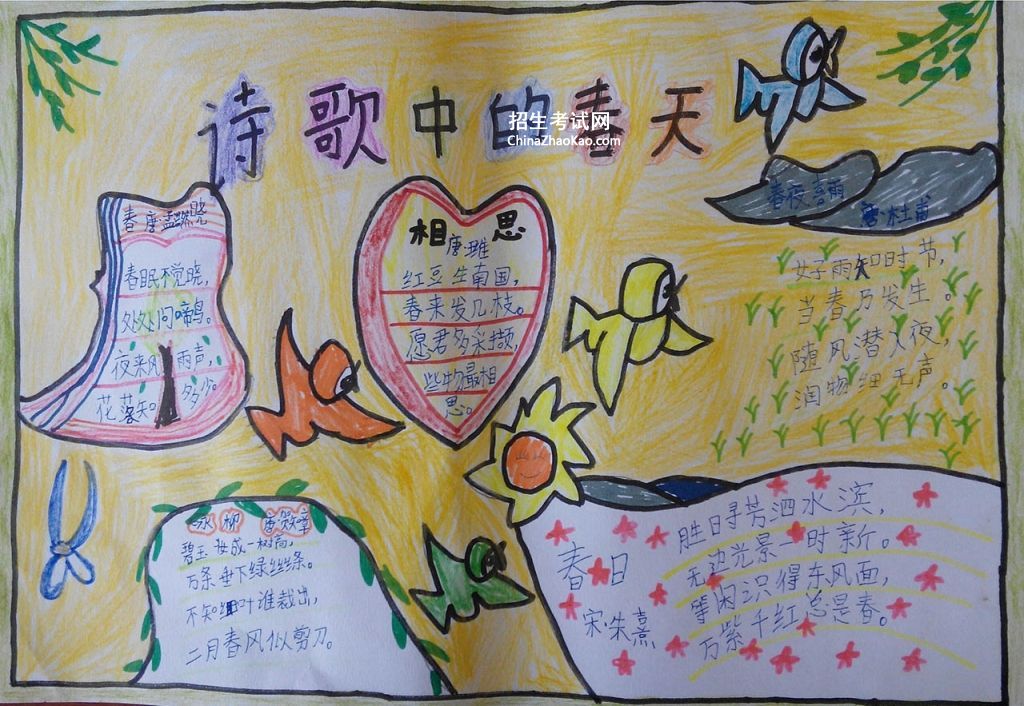 诗歌中的春天
招生考试网
ChinaZhaoKao.com
春 唐·孟燃晓
春眠不觉晓,
处处闻啼鸟。
夜来风雨声,
花落知多少。
相思
唐·
红豆生南国,
春来发几枝。
愿君多采撷,
些物最相
思。
春夜喜雨
唐·杜甫
好雨知时节,
当春乃发生。
随风潜入夜,
润物细无声。
咏柳 唐
碧玉妆成一树高,
万条垂下绿丝绦。
不知细叶谁裁出,
二月春风似剪刀。
春日
宋·朱熹
胜日寻芳泗水滨,
无边光景一时新。
等闲识得东风面,
万紫千红总是春。